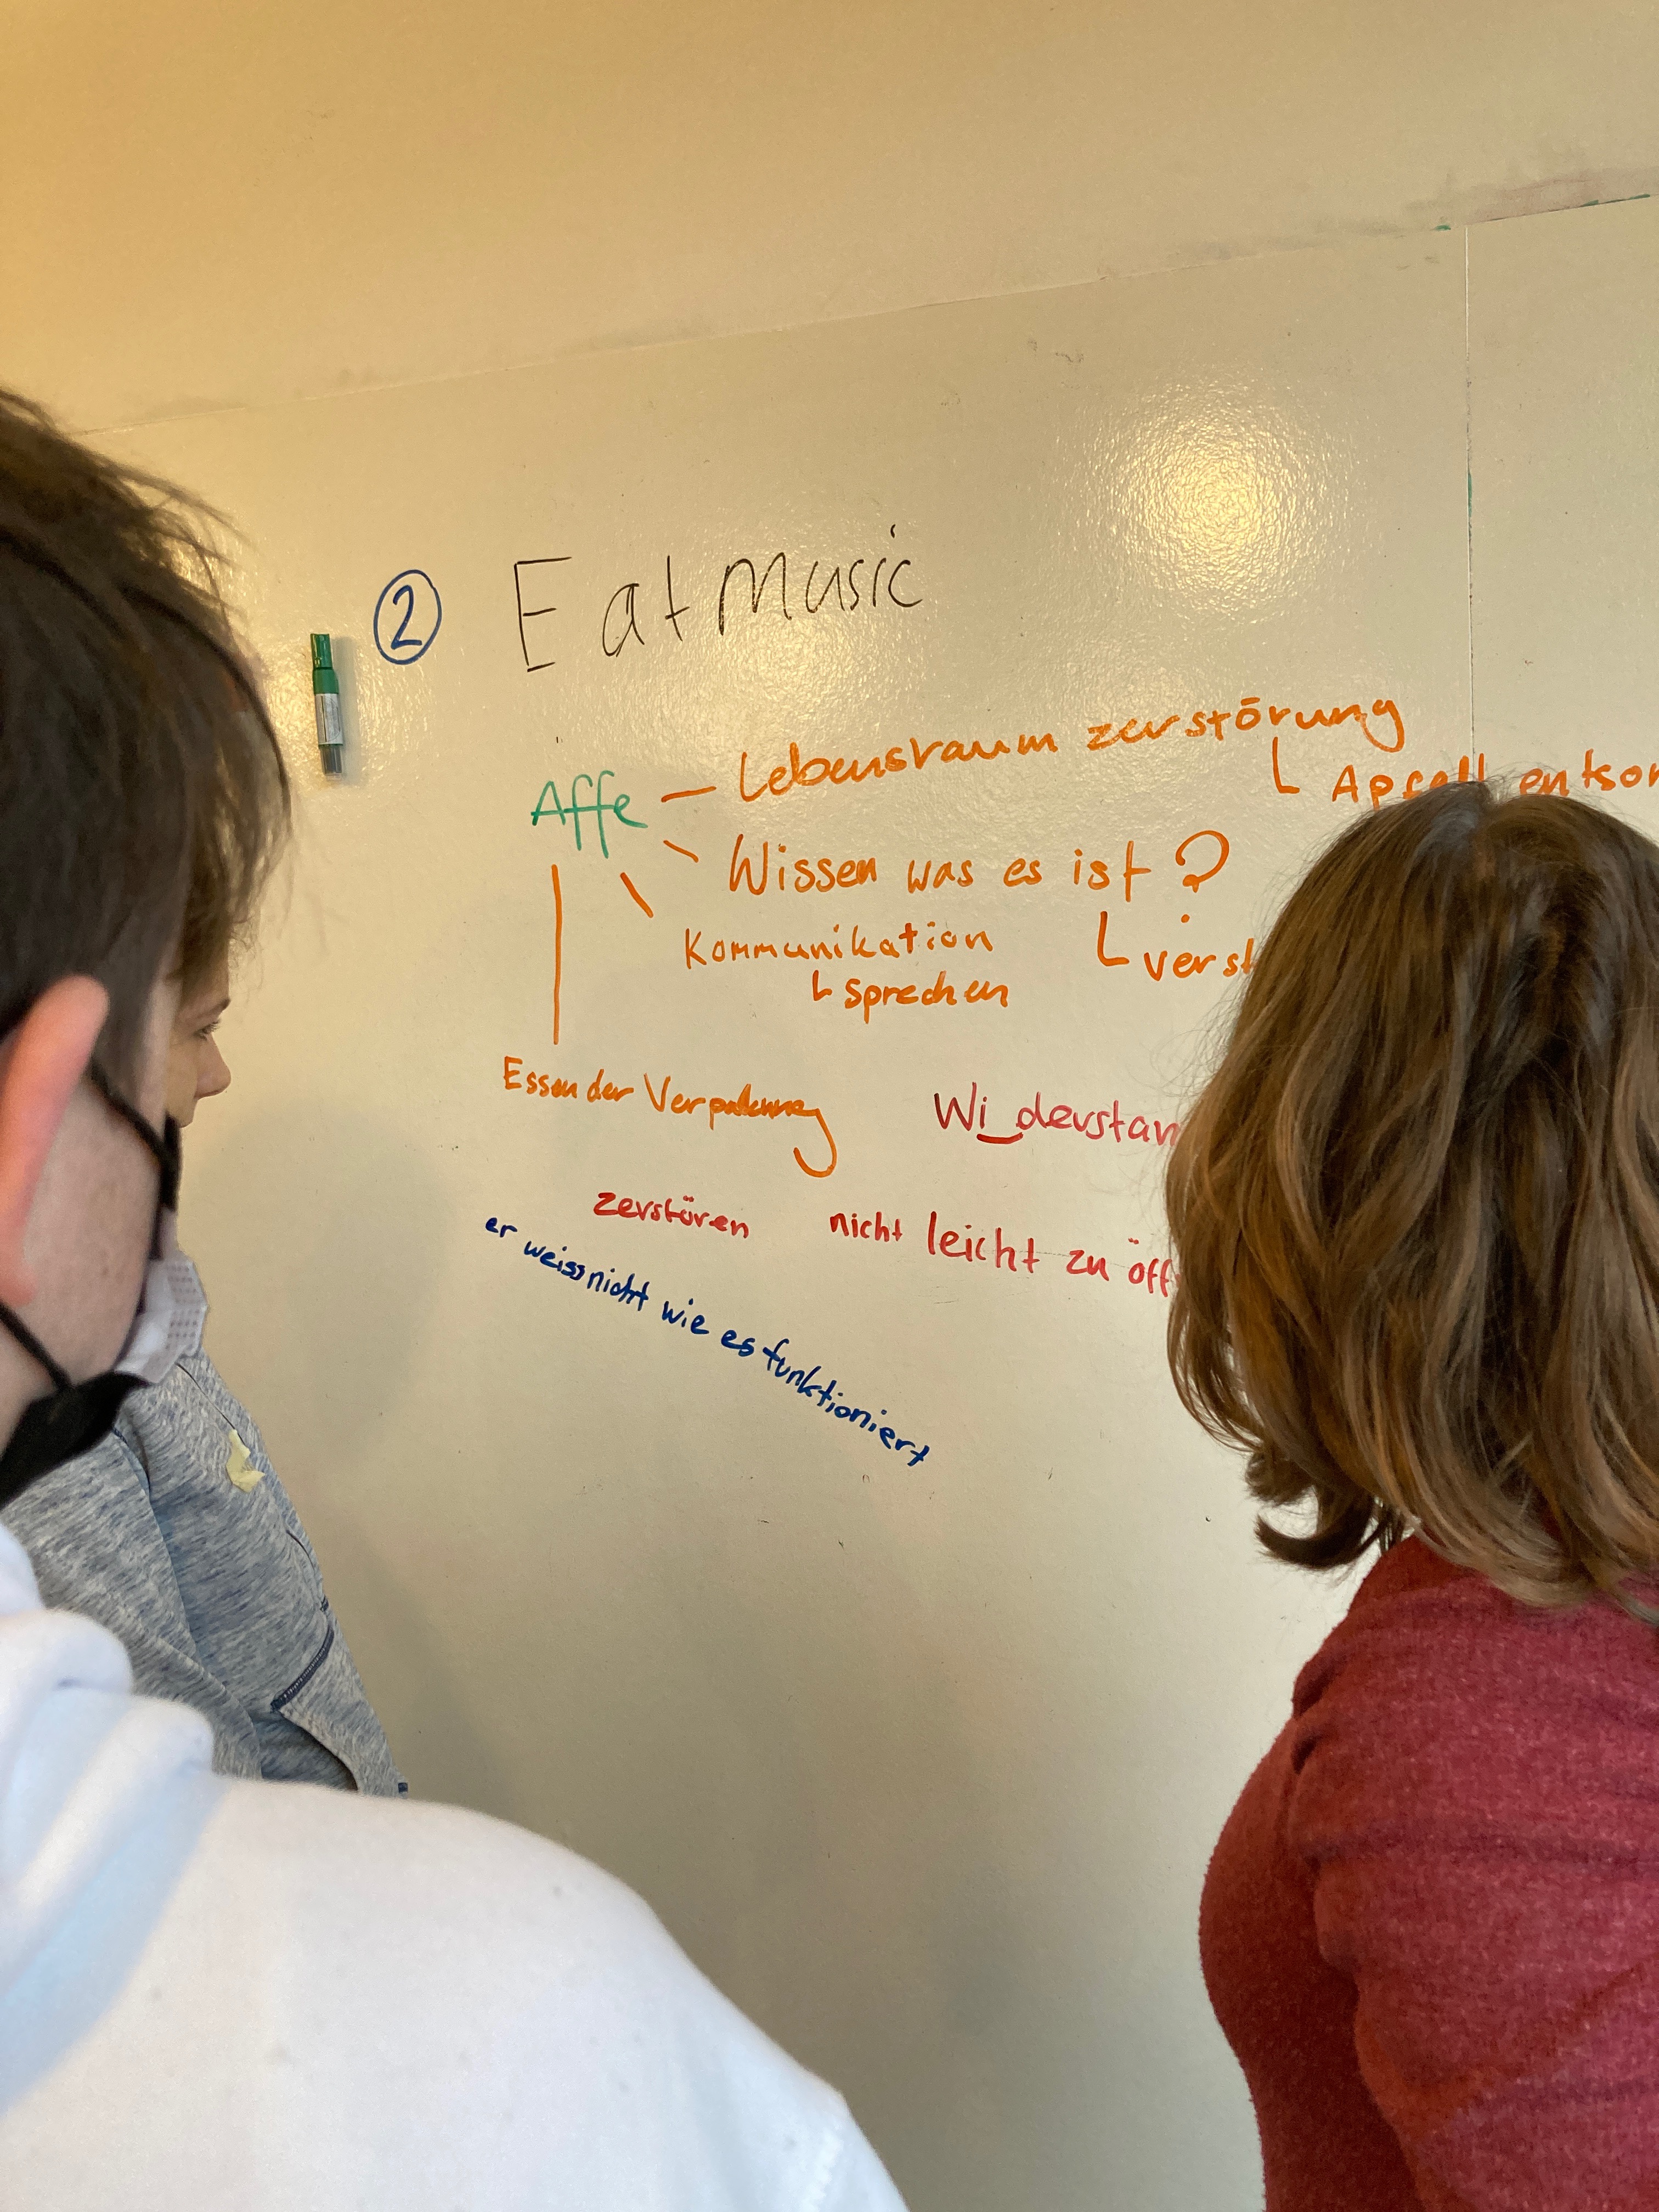 ② Eat Music
Affe – Lebensraum zerstörung
└ entsor
Wissen was es ist ?
└ verst
Kommunikation
└ sprechen
Essen der Verpakung
Wi_derstan
zerstören nicht leicht zu öff
er weiss nicht wie es funktioniert